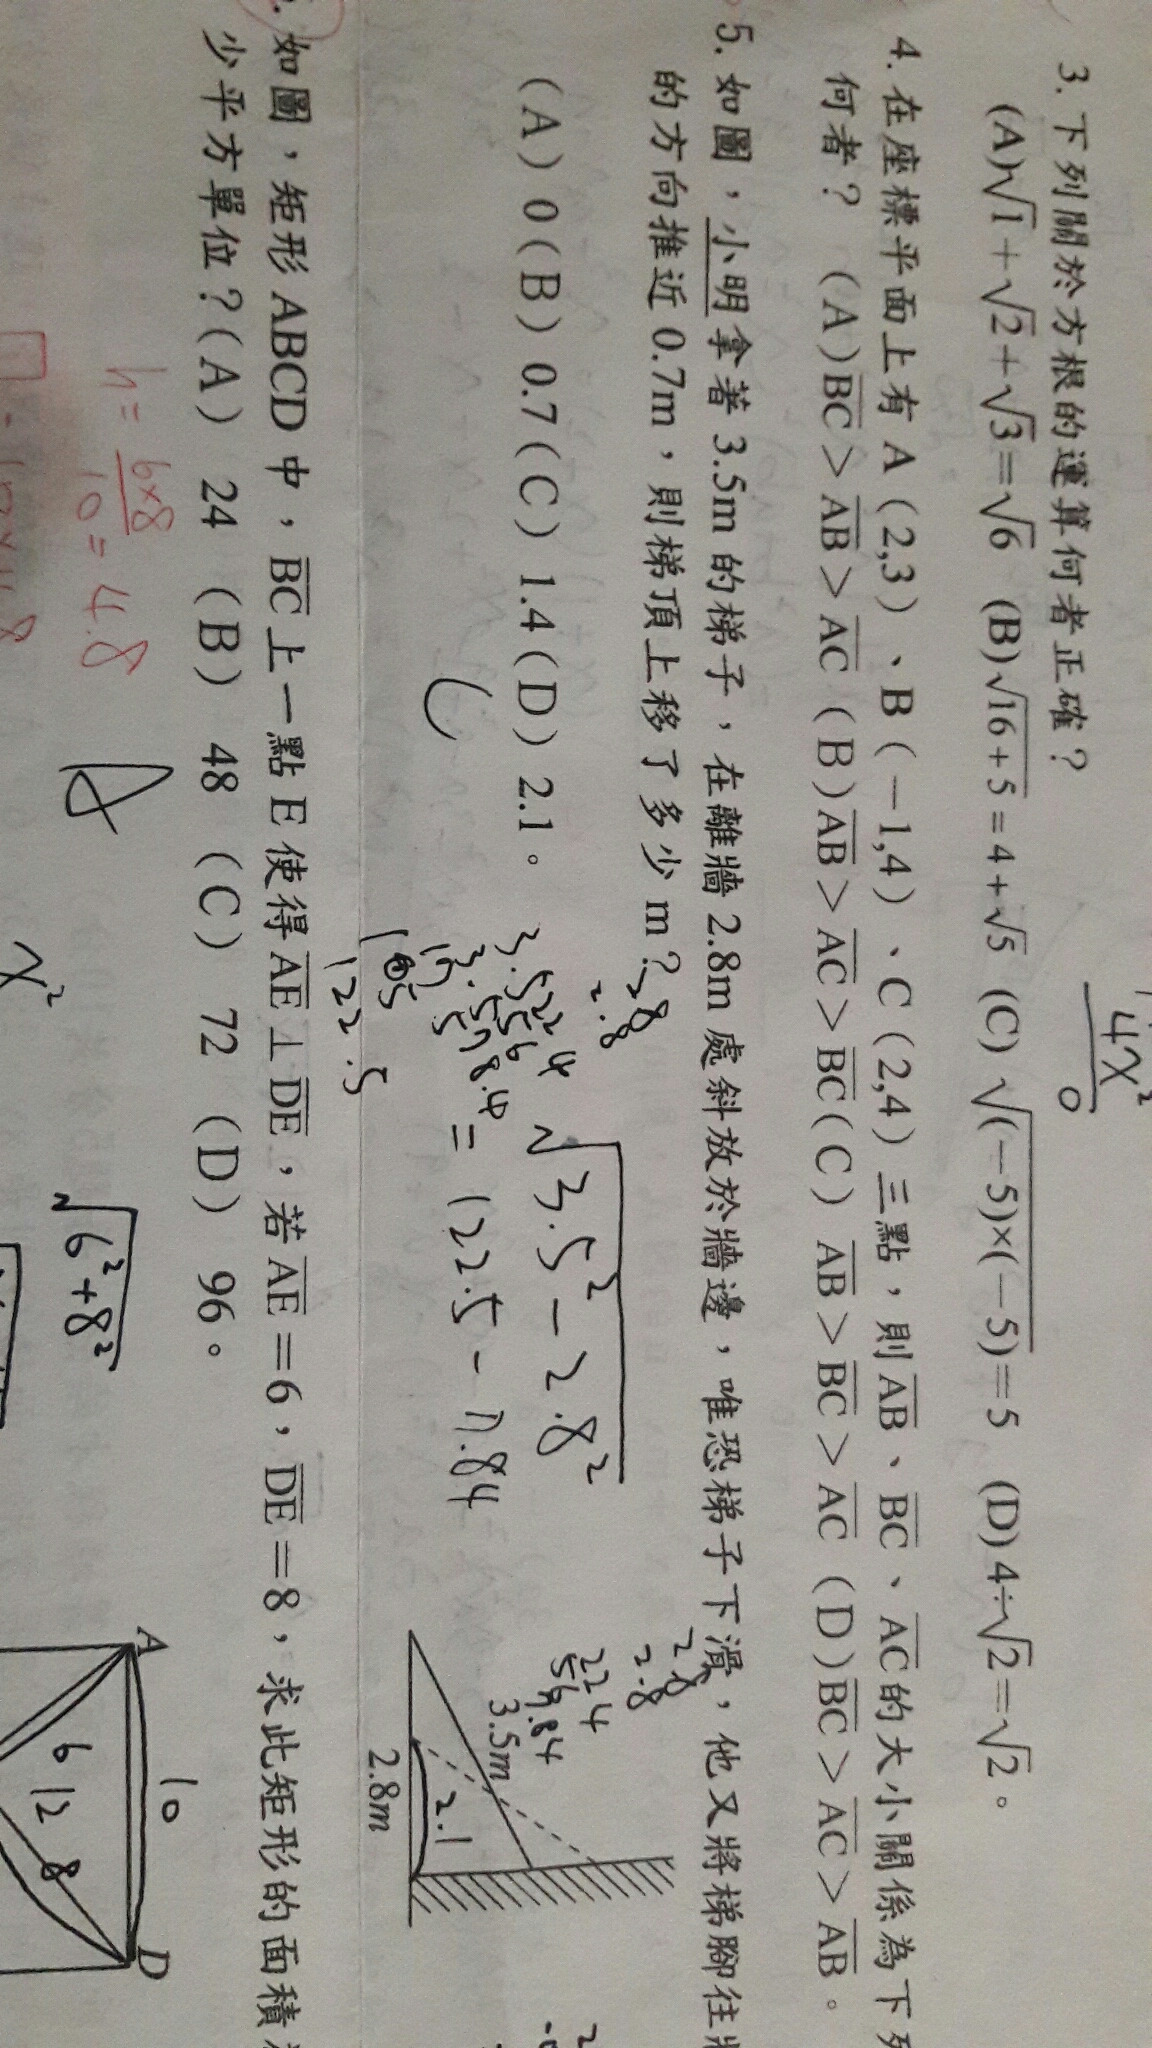 4x²
0
3. 下列關於方根的運算何者正確？
(A)√1+√2+√3=√6 (B)√16+5=4+√5 (C)√(−5)×(−5)=5 (D)4÷√2=√2。
4. 在座標平面上有 A（2,3）、B（−1,4）、C（2,4）三點，則AB、BC、AC的大小關係為下列
何者？（A）BC＞AB＞AC（B）AB＞AC＞BC（C）AB＞BC＞AC（D）BC＞AC＞AB。
5. 如圖，小明拿著 3.5m 的梯子，在離牆 2.8m 處斜放於牆邊，唯恐梯子下滑，他又將梯腳往牆
的方向推近 0.7m，則梯頂上移了多少 m？
(A) 0 (B) 0.7 (C) 1.4 (D) 2.1。
2.8
2.8
224
56
7.84
√3.5²−2.8²
3.5
3.5
122.5
=122.5−7.84
C
2.8
2.8
224
56
7.84
3.5m
2.1
2.8m
如圖，矩形 ABCD 中，BC上一點 E 使得AE⊥DE，若AE=6，DE=8，求此矩形的面積
少平方單位？(A) 24 (B) 48 (C) 72 (D) 96。
h=6×8/10=4.8
√6²+8²
x²
10
A
D
6
8